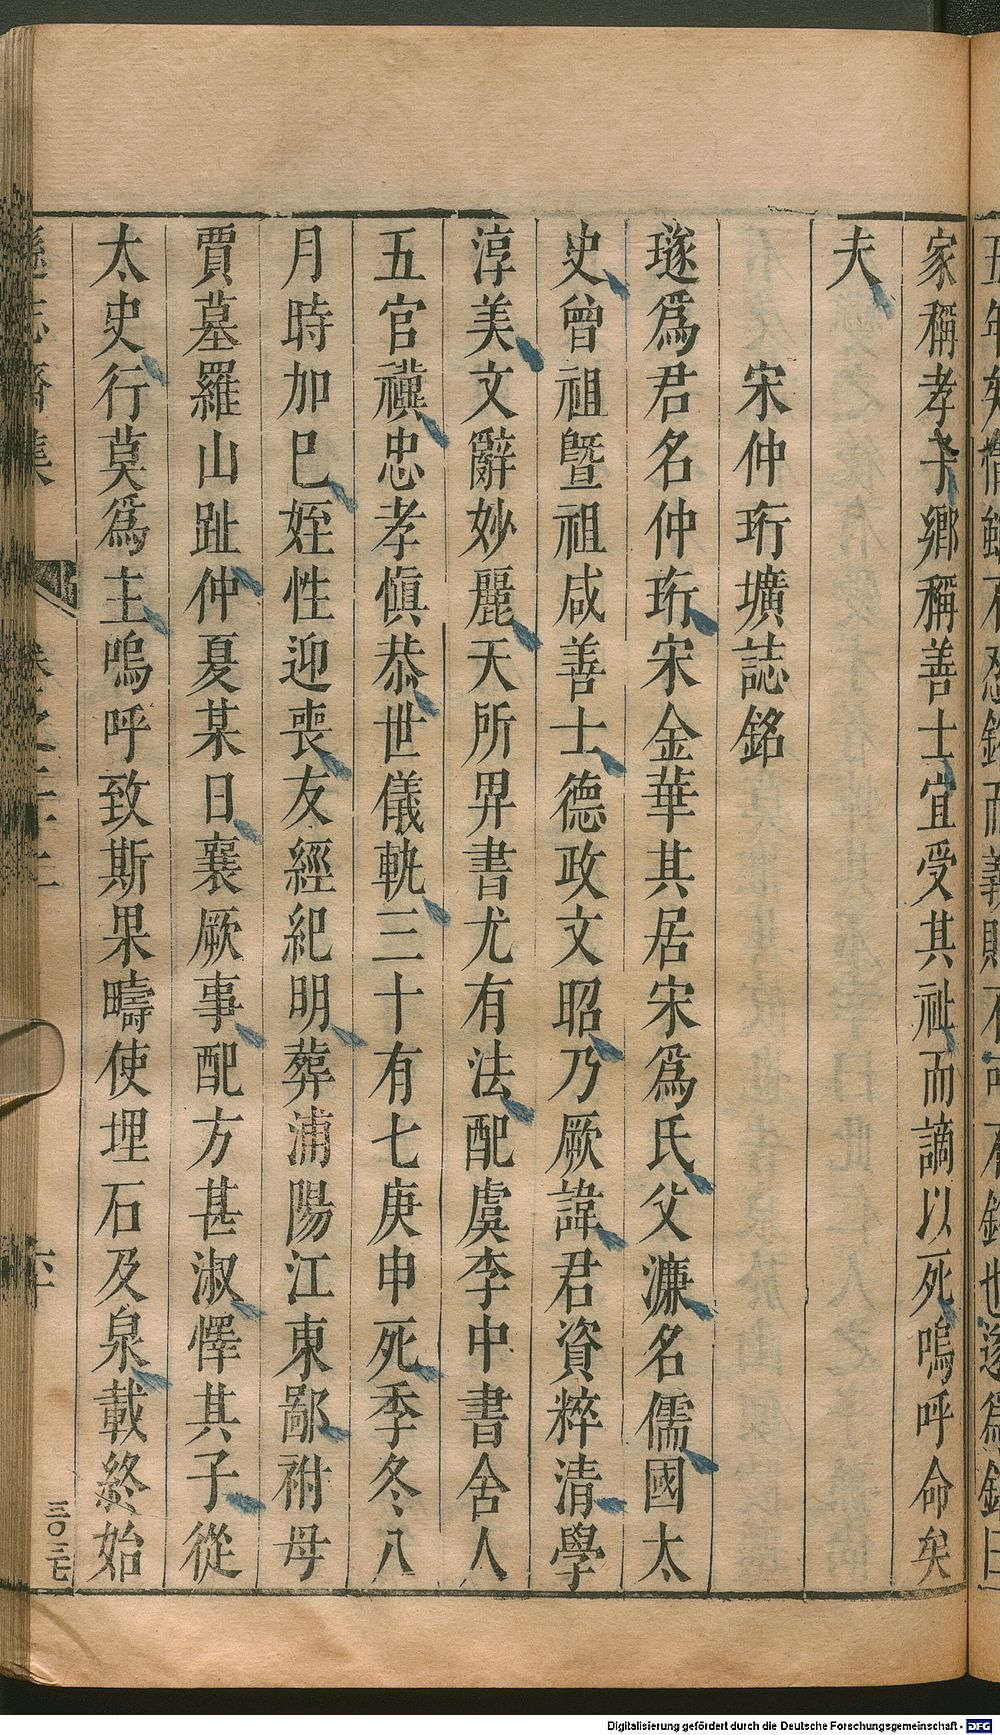 家稱孝子鄉稱善士宜受其祉而謫以死嗚呼命矣
夫
宋仲珩壙誌銘
璲爲君名仲珩宋金華其居宋爲氏父濂名儒國太
史曾祖曁祖咸善士德政文昭乃厥諱君資粹清學
淳美文辭妙麗天所畀書尤有法配虞李中書舍人
五官冀忠孝愼恭世儀軌三十有七庚申死季冬八
月時加巳姪性迎喪友經紀明葬浦陽江東鄙祔母
賈墓羅山趾仲夏某日襄厥事配方甚淑懌其子從
太史行莫爲主嗚呼致斯果疇使埋石及泉載終始
三〇三七
Digitalisierung gefördert durch die Deutsche Forschungsgemeinschaft - DFG